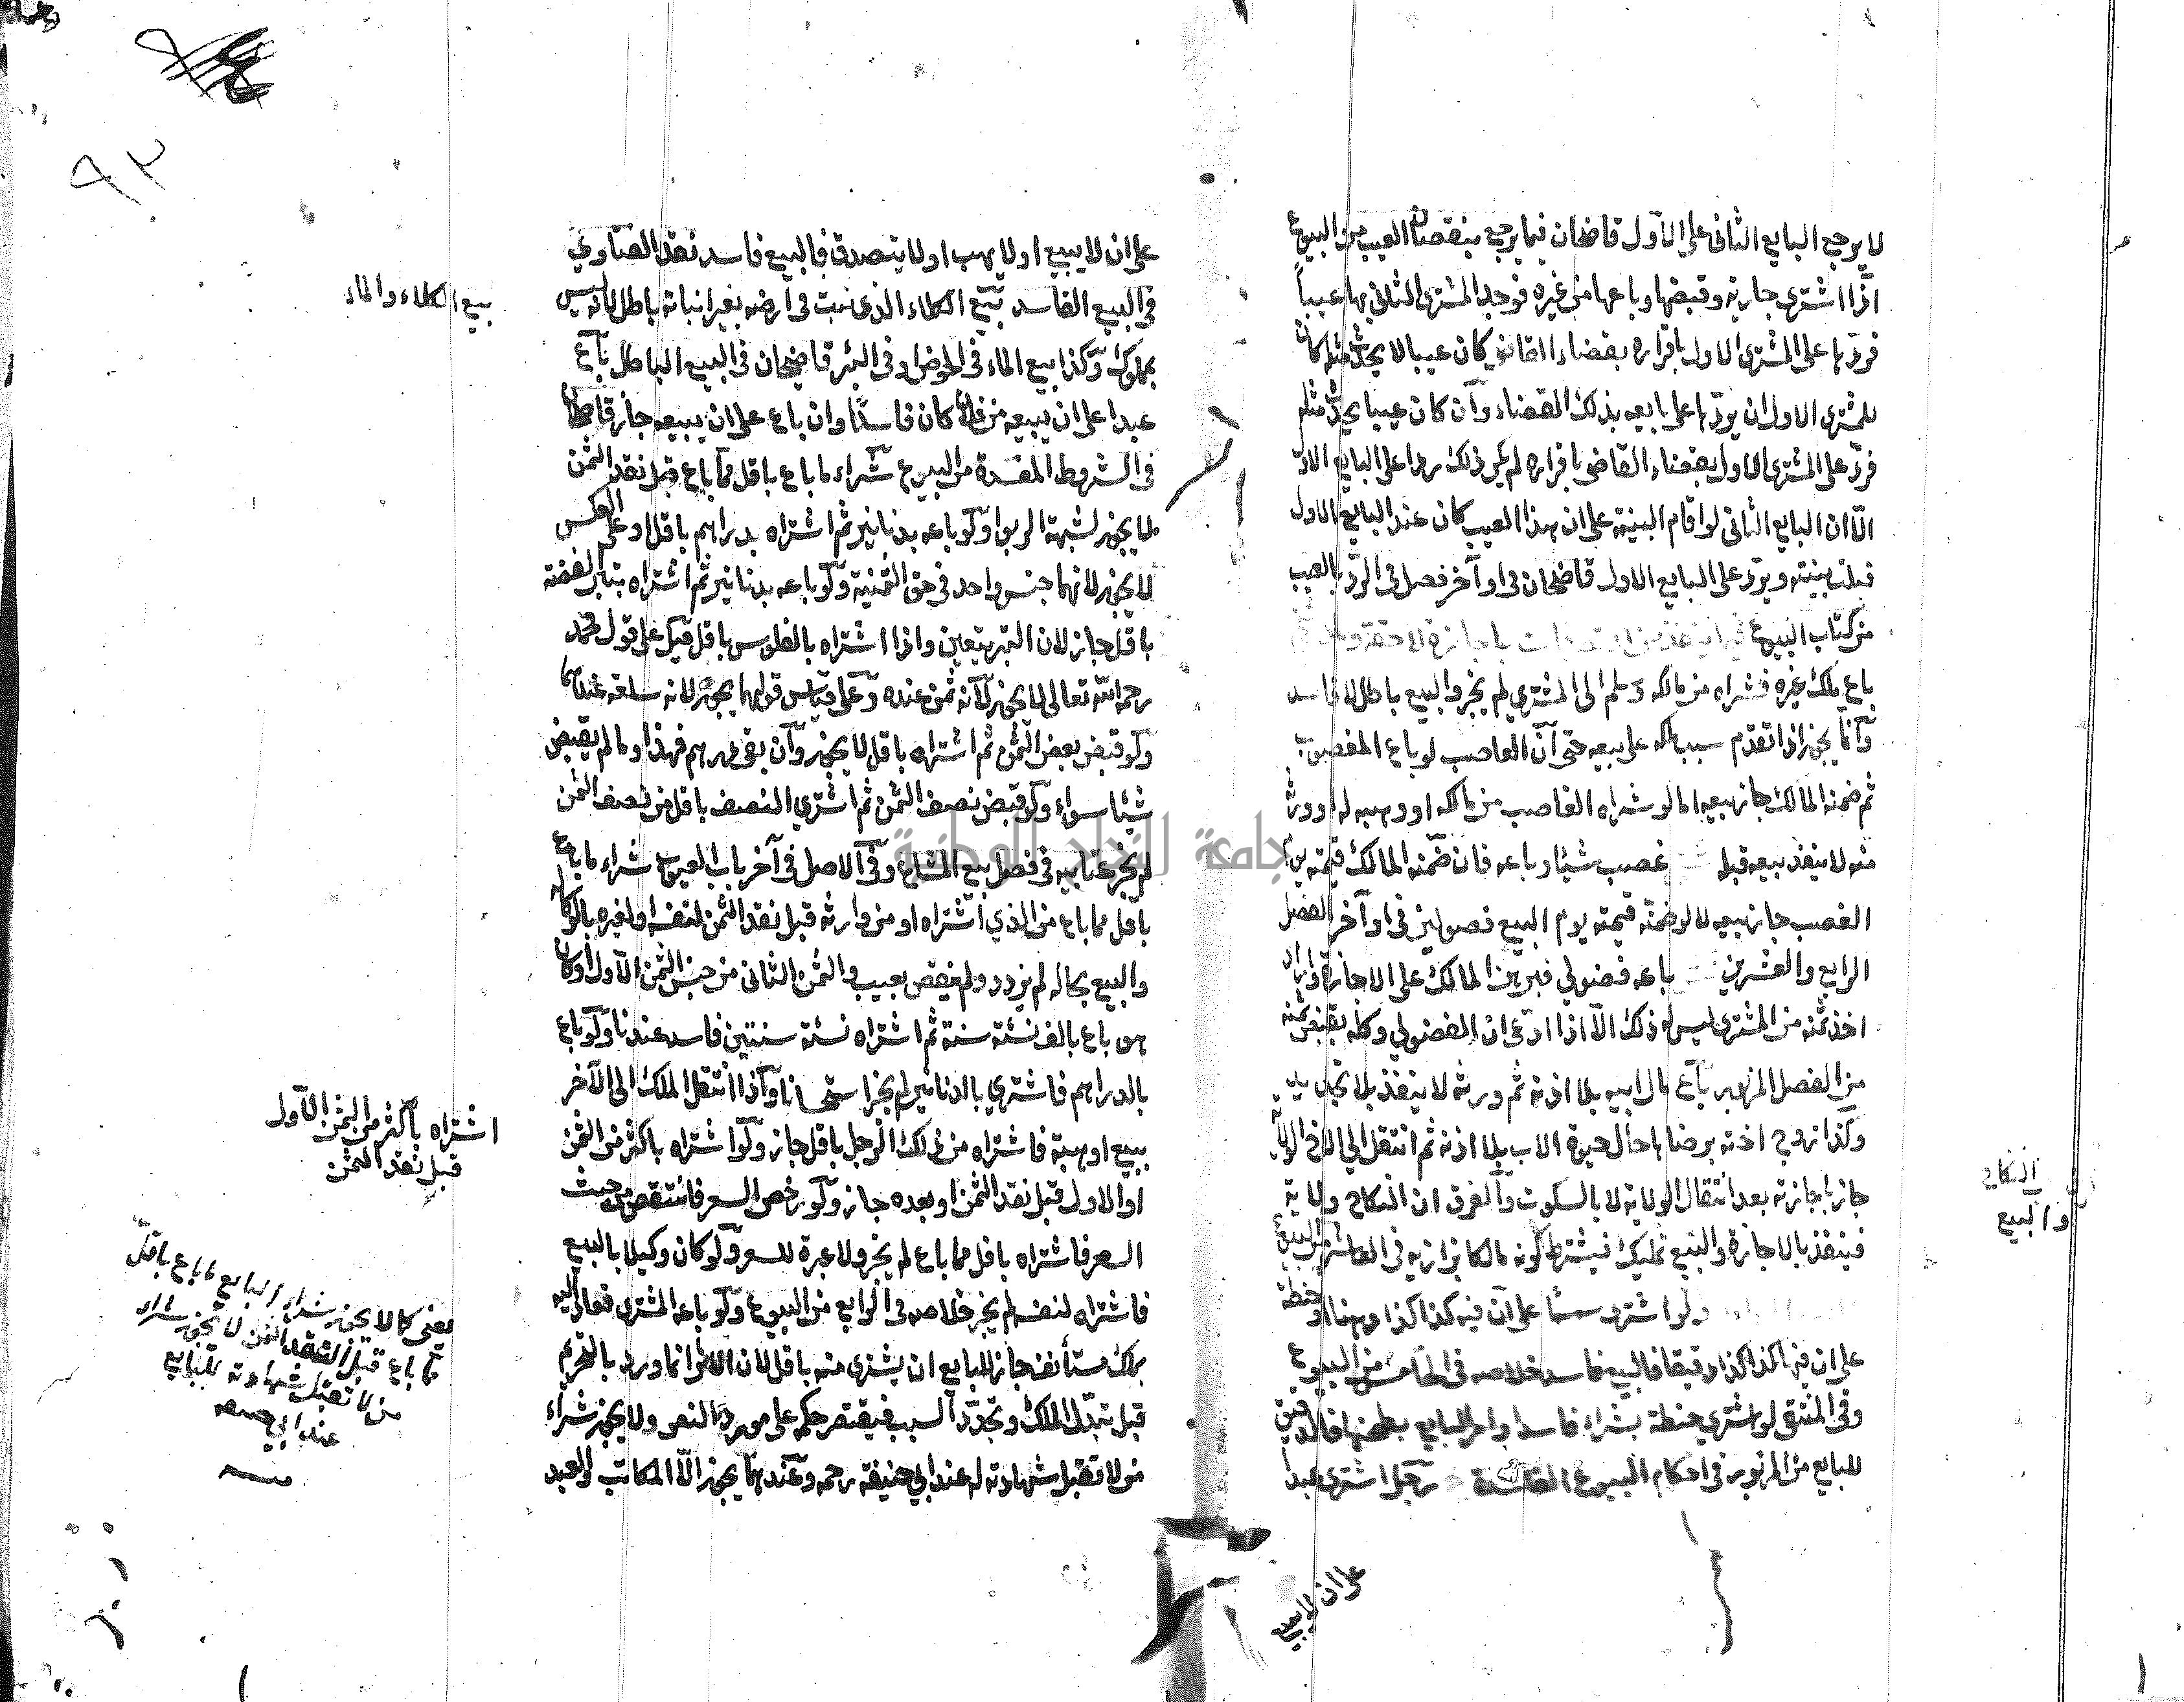 لا يرجع البايع الثانى على الاول قاضخان فيما يرجع بنقصان العيب من البيوع
اذا اشترى جارية وقبضها وباعها من غيره فوجد المشترى الثانى بها عيباً
فردّها على المشترى الاول باقراره بقضاء القاضى كان عيبا لا يحدث مثله كان
للمشترى الاول ان يردّها على بايعه بذلك القضاء وان كان عيبا يحدث مثله
فردّ على المشترى الاول بقضاء القاضى باقراره لم يكن ذلك ردا على البايع الاول
الا ان البايع الثانى لو اقام البينة على ان هذا العيب كان عند البايع الاول
قبلت بينته ويردّ على البايع الاول قاضخان فى اواخر فصل فى الردّ بالعيب
من كتاب البيوع فيما ينفذ من التصرفات باجازة لاحقة
باع ملك غيره فشراه من مالكه وسلم الى المشترى لم يجز والبيع باطل لا فاسد
وانما يجوز اذا تقدم سبب ملكه على بيعه حتى ان الغاصب لو باع المغصوب
ثم ضمنه المالك جاز بيعه اما لو شراه الغاصب من مالكه او وهبه له او ورثه
منه لا ينفذ بيعه قبله غصب شيئا وباعه فان ضمنه المالك قيمته يوم
الغصب جاز بيعه لا لو ضمنه قيمته يوم البيع فصولين فى اواخر الفصل
الرابع والعشرين باعه فضولي فبرهن المالك على الاجازة واراد
اخذ ثمنه من المشترى ليس له ذلك الا اذا ادعى ان الفضولي وكله بقبض ثمنه
من الفصل المزبور باع مال ابيه بلا اذنه ثم ورثه لا ينفذ بلا تجديد
وكذا زوج اخته برضاها حال حيوة الاب بلا اذنه ثم انتقل الى الاخ الولاية
جاز باجازته بعد انتقال الولاية لا بالسكوت والفرق ان النكاح ولاية
فينفذ بالاجازة والبيع تمليك فيشترط كونه مالكا بزازيه فى العاشر من البيوع
ولو اشترى سمسما على ان فيه كذا كذا دهنا او حنطة
على ان فيها كذا كذا دقيقا فالبيع فاسد خلاصه فى الخامس من البيوع
وفى المنتقى لو اشترى حنطة بشراء فاسد وامر البايع بطحنها فالدقيق
للبايع من المزبور فى احكام البيوع الفاسدة رجل اشترى عبدا
على ان لا يبيع
النكاح
والبيع
على ان لا يبيع او لا يهب او لا يتصدق فالبيع فاسد نقد الفتاوي
فى البيع الفاسد بيع الكلاء الذى نبت فى ارضه بغير انباته باطل لانه ليس
بمملوك وكذا بيع الماء فى الحوض او فى البئر قاضيخان فى البيع الباطل باع
عبدا على ان يبيعه من فلان كان فاسدًا وان باع على ان يبيعه جاز قاضخان
فى الشروط المفسدة من البيوع شراء ما باع باقل مما باع قبل نقد الثمن
لا يجوز لشبهة الربوا ولو باعه بدنانير ثم اشتراه بدراهم باقل او على العكس
لا يجوز لانهما جنس واحد فى حق الثمنية ولو باعه بدنانير ثم اشتراه بتبر الفضة
باقل جاز لان التبر يتعين واذا اشتراه بالفلوس باقل قيل على قول محمد
رحمه الله تعالى لا يجوز لانه ثمن عنده وعلى قياس قولهما يجوز لانه سلعة عندهما
ولو قبض بعض الثمن ثم اشتراه باقل لا يجوز وان بقى درهم فهذا وما لم يقبض
شيئا سواء ولو قبض نصف الثمن ثم اشترى النصف باقل من نصف الثمن
لم يجز عتابيه فى فصل بيع المشاع وفى الاصل فى آخر باب العيوب شراء ما باع
باقل مما باع من الذي اشتراه او من وارثه قبل نقد الثمن لنفسه او لغيره بالوكالة
والبيع بحاله لم يزدد ولم ينقص بعيب والثمن الثانى من جنس الثمن الاول او كان
هو باع بالف نسئة سنة ثم اشتراه نسئة سنتين فاسد عندنا ولو باع
بالدراهم فاشترى بالدنانير لم يجز استحسانا واذا انتقل الملك الى الآخر
ببيع او بهبة فاشتراه من ذلك الرجل باقل جاز ولو اشتراه باكثر من الثمن
او الاول قبل نقد الثمن او بعده جاز ولو رخص السعر فانتقص من حيث
السعر فاشتراه باقل مما باع لم يجز ولا عبرة للسعر ولو كان وكيلا بالبيع
فاشتراه لنفسه لم يجز خلاصه فى الرابع من البيوع ولو باعه المشترى فعاد اليه
بملك مستأنف جاز للبايع ان يشترى منه باقل لان الاثر انما ورد بالتحريم
قبل تبدّل الملك وتجدّد السبب فيقتصر حكمه على مورد النص ولا يجوز شراء
من لا تقبل شهادته له عند ابى حنيفة رحمه وعندهما يجوز الا المكاتب والعبد
بيع الكلاء والماء
اشتراه باكثر من الثمن الاول
قبل نقد الثمن
يعنى كما لا يجوز شراء البايع ما باع باقل
مما باع قبل نقد الثمن لا يجوز شراء
من لا تقبل شهادته للبايع
عند ابي حنيفه
٩٣
جامعة النجاح الوطنية